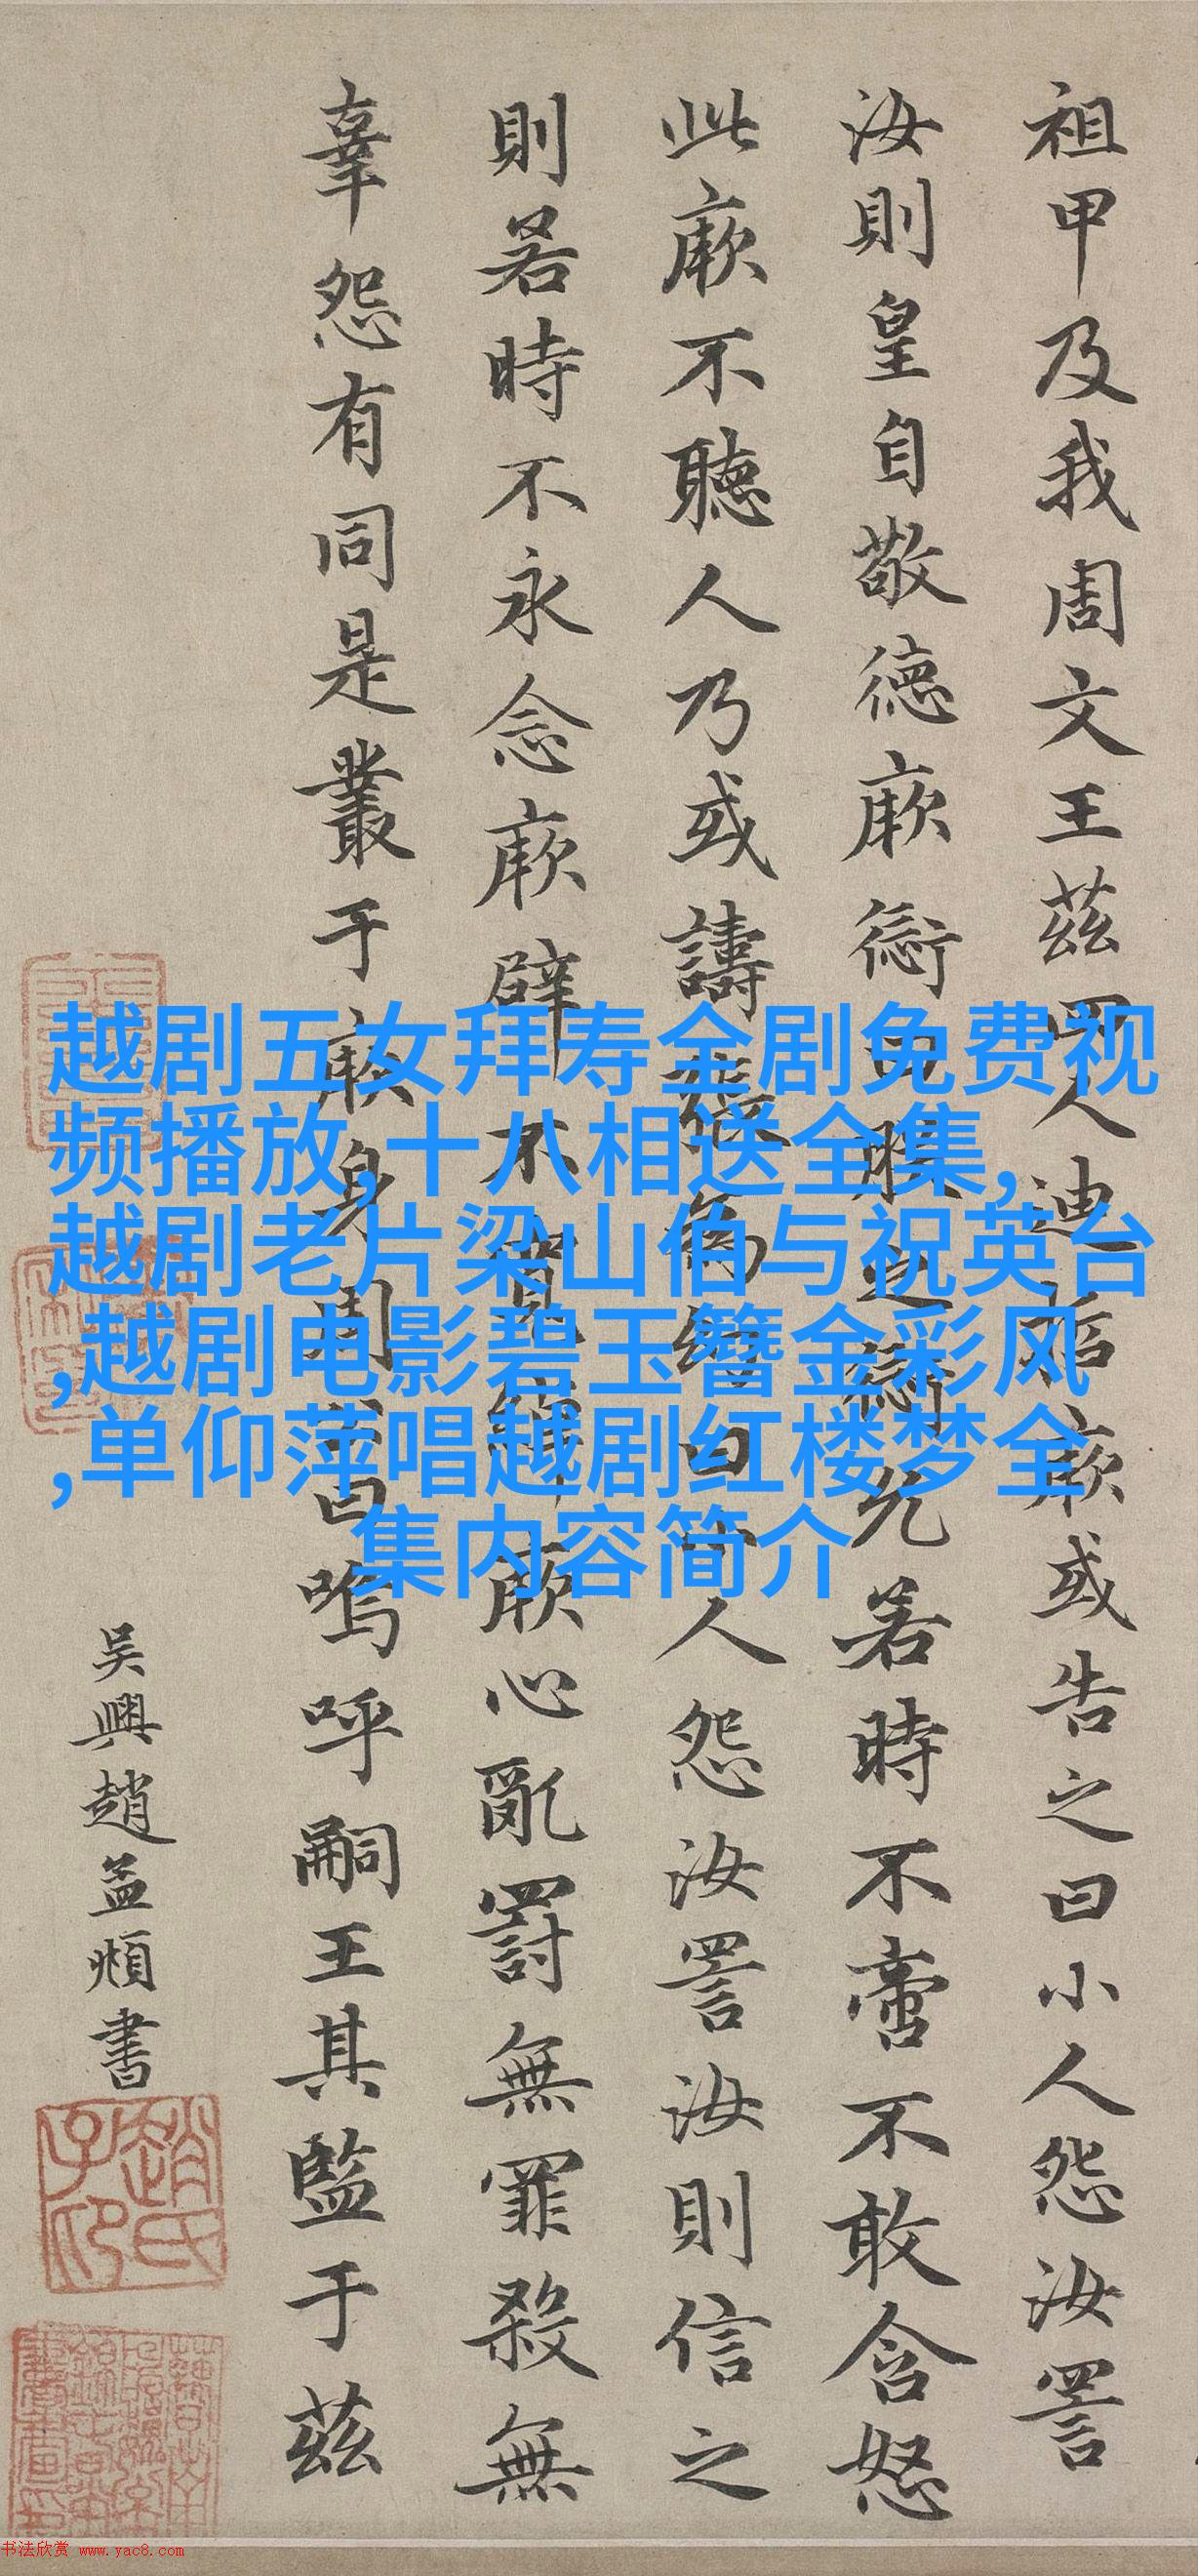 祖甲及我周文王茲四人迪哲厥或告之曰小人怨汝詈
汝則皇自敬德厥愆曰朕之愆允若時不啻不敢含怒
此厥不聽人乃或譸張為幻曰小人怨汝詈汝則信之
則若時不永念厥辟不寬綽厥心亂罰無罪殺無
辜怨有同是叢于厥身周公曰嗚呼嗣王其監于茲
吳興趙孟頫書
趙氏子昂
越剧五女拜寿全剧免费视
频播放,十八相送全集,
越剧老片梁山伯与祝英台
,越剧电影碧玉簪金彩风
,单仰萍唱越剧红楼梦全
集内容简介
书法欣赏 www.yac8.com